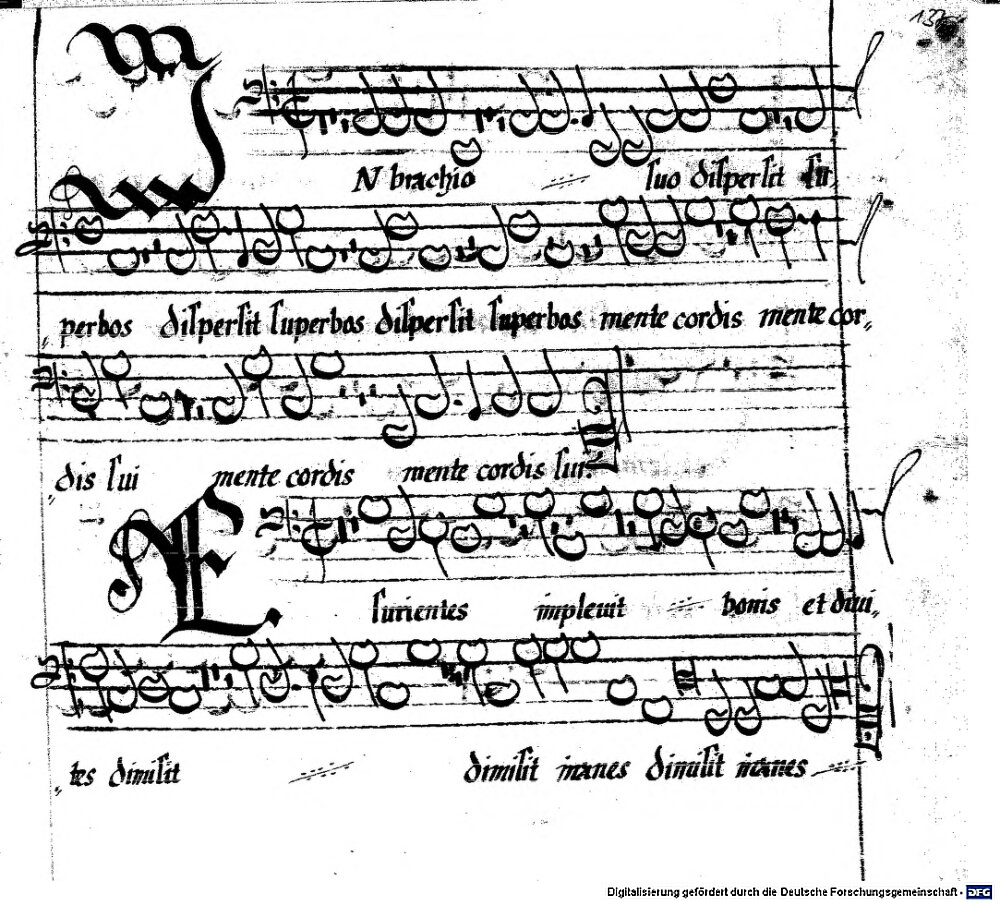 IN brachio suo dispersit su
perbos dispersit superbos dispersit superbos mente cordis mente cor„
„dis sui mente cordis mente cordis sui:
Esurientes implevit bonis et divi„
„tes dimisit dimisit inanes dimisit inanes
Digitalisierung gefördert durch die Deutsche Forschungsgemeinschaft - DFG